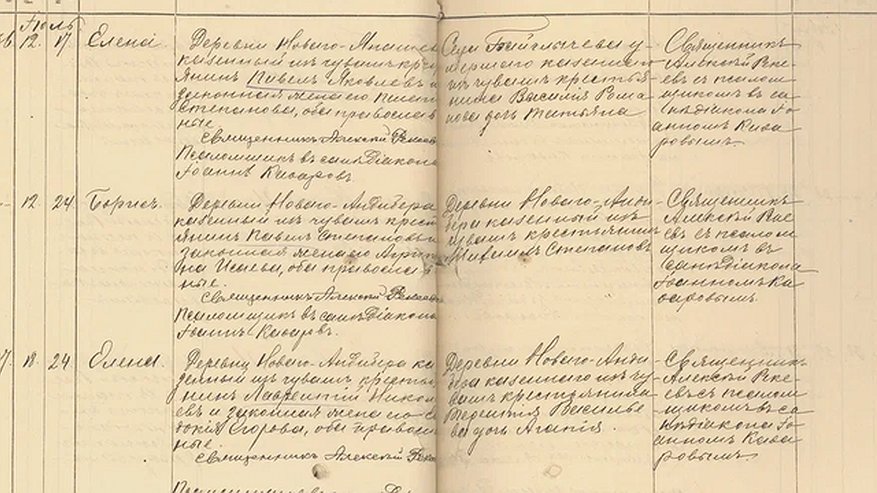 Іюль
12. 17 Елена
Деревни Новаго-
казенный изъ чувашъ крес
янинъ Павелъ Яковлевъ и
законная жена его
Степанова, оба православ
ные
Священникъ Алексѣй
Псаломщикъ въ санѣ діакона
Іоаннъ
Села Байглычева у
мершаго казеннаго
изъ чувашъ крестья
нина Василія Рома
нова дочь Татьяна
Священникъ
Алексѣй
евъ съ псалом
щикомъ въ са
нѣ діакона Іо
анномъ
ровымъ
12 24 Борисъ.
Деревни Новаго-
казенный изъ чувашъ крест
янинъ Павелъ Степановъ и
законная жена его
Исаева, оба православ
ные.
Священникъ Алексѣй
Псаломщикъ въ санѣ діакона
Іоаннъ
Деревни Новаго-
казенный изъ
чувашъ крестьянинъ
Степановъ
Священникъ
Алексѣй
евъ съ псалом
щикомъ въ
санѣ діакона
Іоанномъ
ровымъ
24 Елена.
Деревни Новаго- ка
зенный изъ чувашъ крестья
нинъ Лаврентій Никола
евъ и законная жена его
докія Егорова, оба православ
ные.
Священникъ Алексѣй
Деревни Новаго-
казеннаго изъ чу
вашъ крестьянина
Терентія Василье
ва дочь Агапія.
Священникъ
Алексѣй
евъ съ псалом
щикомъ въ са
нѣ діакона Іо
анномъ
ровымъ